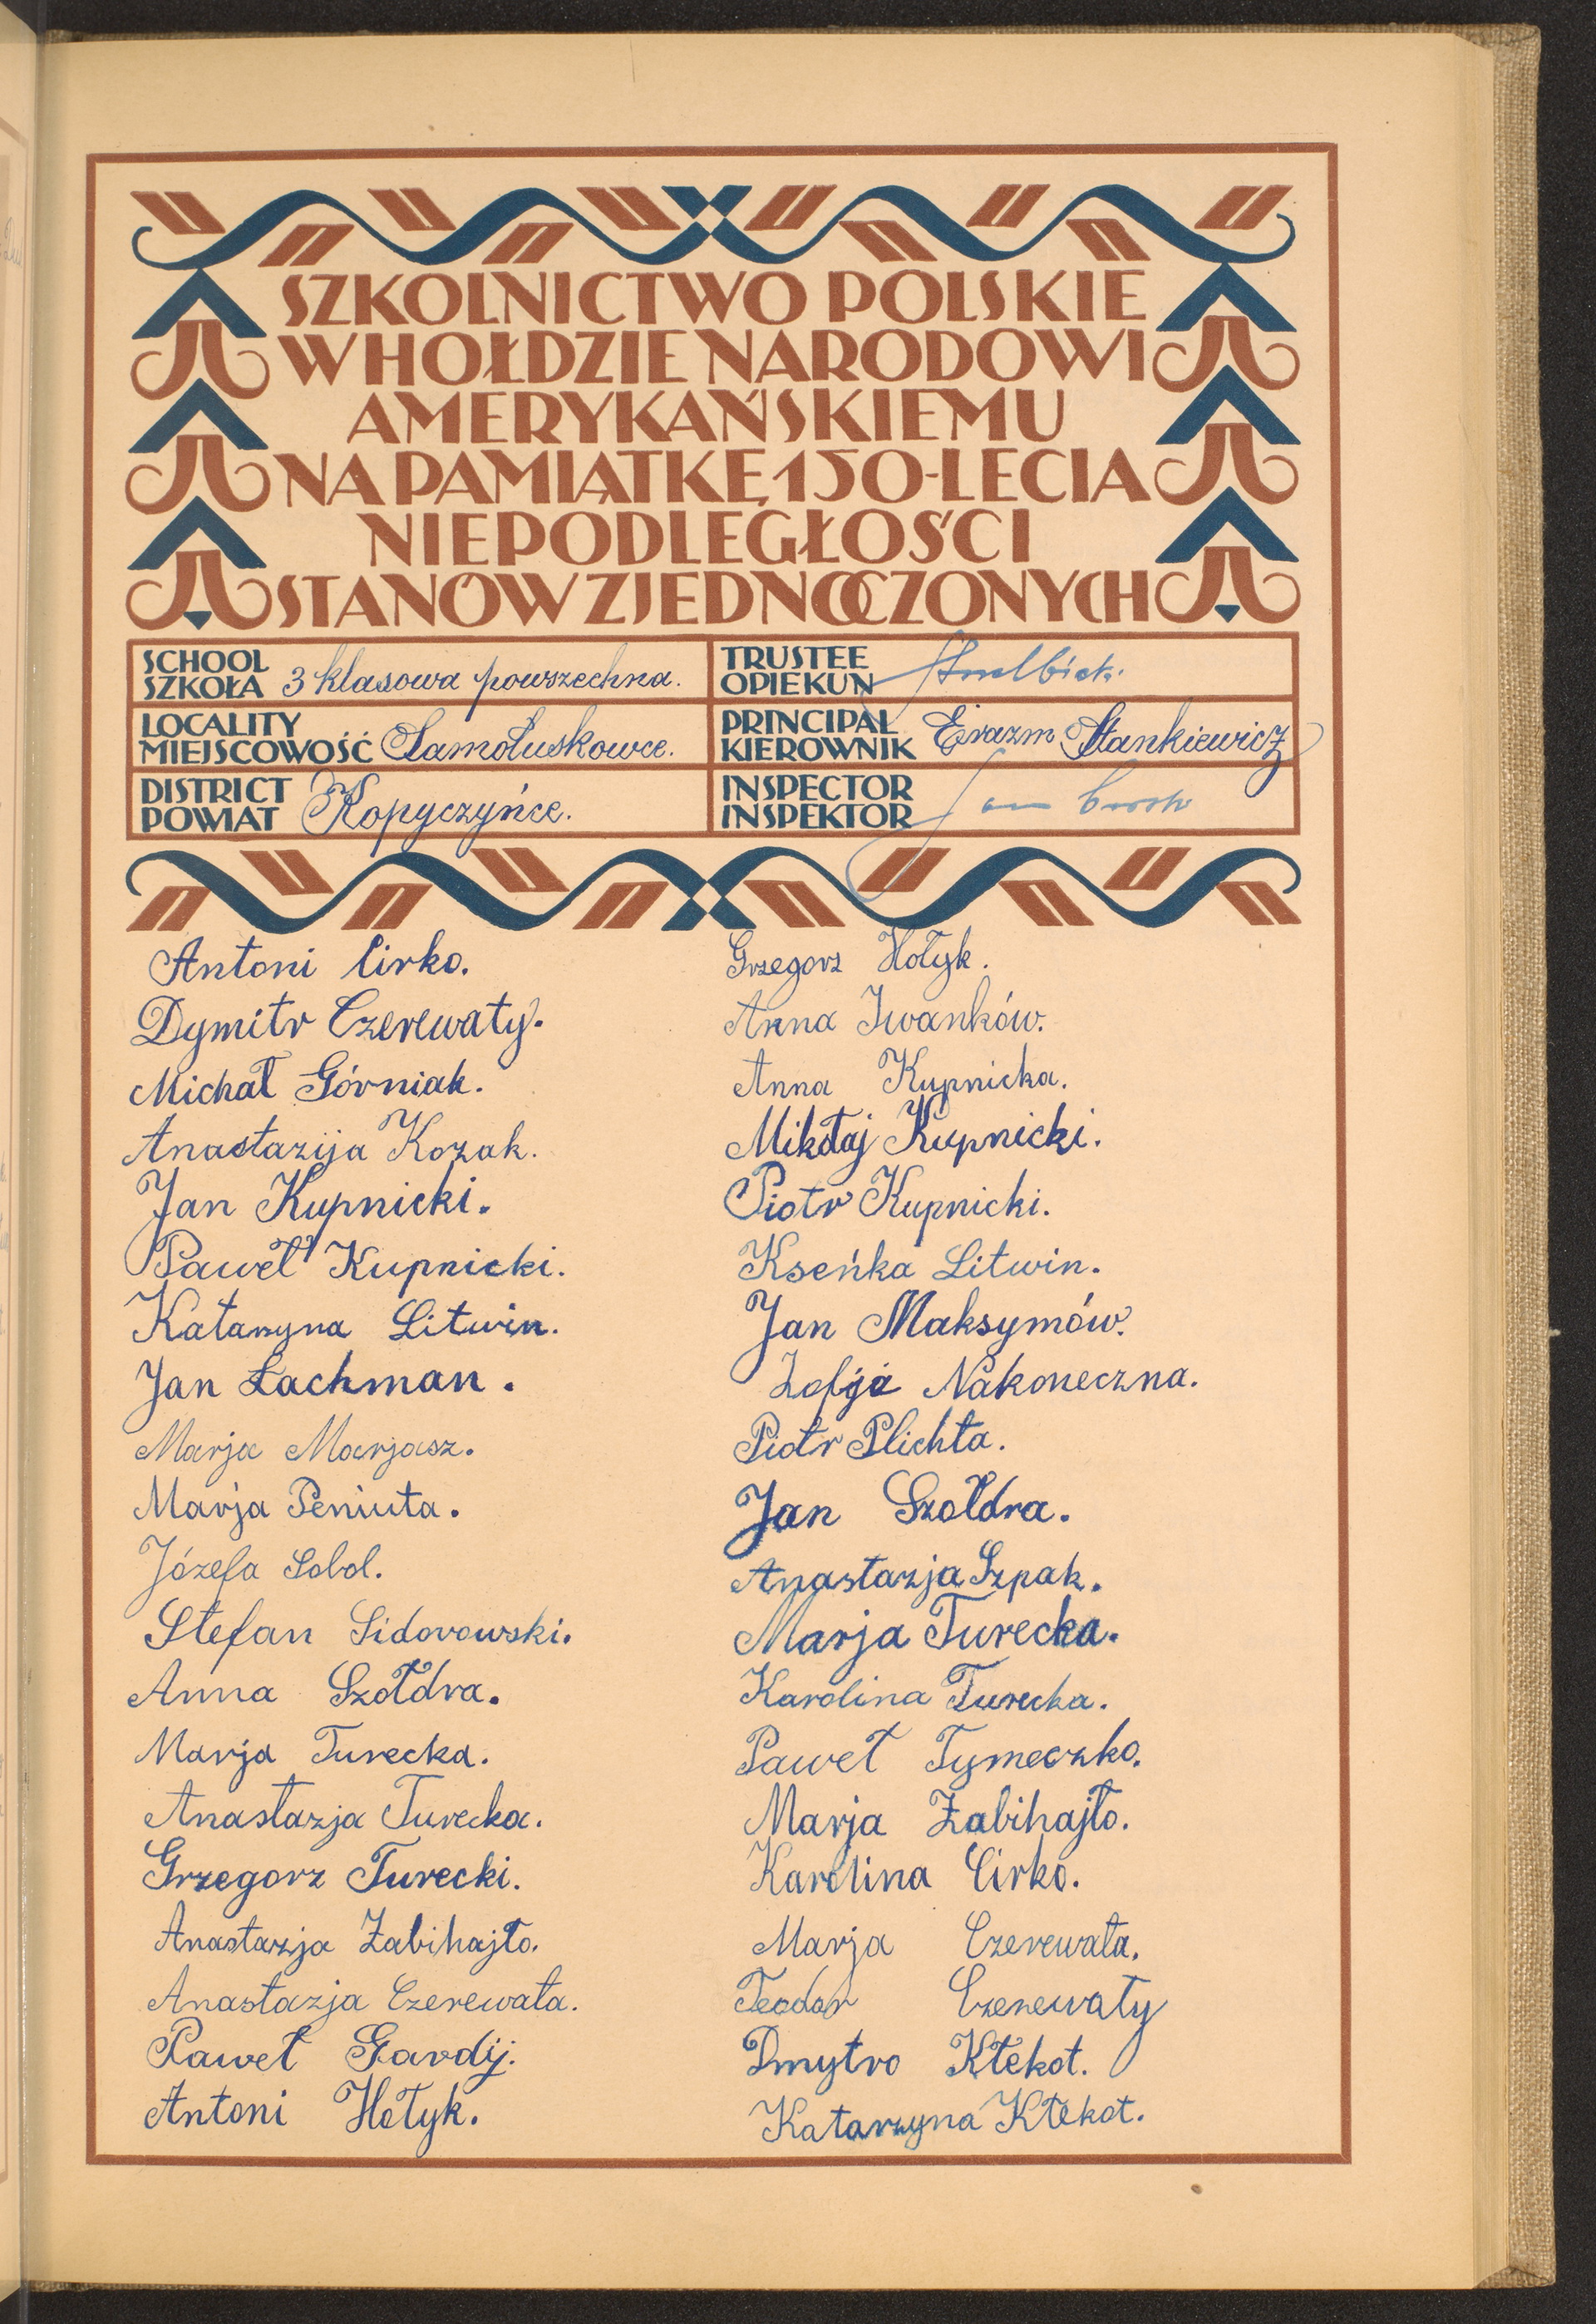 SZKOLNICTWO POLSKIE
W HOŁDZIE NARODOWI
AMERYKAŃSKIEMU
NA PAMIĄTKĘ 150-LECIA
NIEPODLEGŁOŚCI
STANÓW ZJEDNOCZONYCH
SCHOOL
SZKOŁA 3 klasowa powszechna.
LOCALITY
MIEJSCOWOŚĆ Samołuskowce.
DISTRICT
POWIAT Kopyczyńce.
TRUSTEE
OPIEKUN
PRINCIPAL
KIEROWNIK Erazm Stankiewicz
INSPECTOR
INSPEKTOR Jan
Antoni Cirko.
Dymitr Czerewaty.
Michał Górniak.
Anastazija Kozak.
Jan Kupnicki.
Paweł Kupnicki.
Katarzyna Litwin.
Jan Lachman.
Marja Marjasz.
Marja Peniuta.
Józefa Sobol.
Stefan Sidorowski.
Anna Szołdra.
Marja Turecka.
Anastazja Turecka.
Grzegorz Turecki.
Anastazja Zabihajło.
Anastazja Czerewata.
Paweł Gardij.
Antoni Hołyk.
Grzegorz Hołyk.
Anna Iwanków.
Anna Kupnicka.
Mikołaj Kupnicki.
Piotr Kupnicki.
Kseńka Litwin.
Jan Maksymów.
Zofja Nakoneczna.
Piotr Plichta.
Jan Szołdra.
Anastazja Szpak.
Marja Turecka.
Karolina Turecka.
Paweł Tymeczko.
Marja Zabihajło.
Karolina Cirko.
Marja Czerewata.
Teodor Czerewaty
Dmytro Kłekot.
Katarzyna Kłekot.